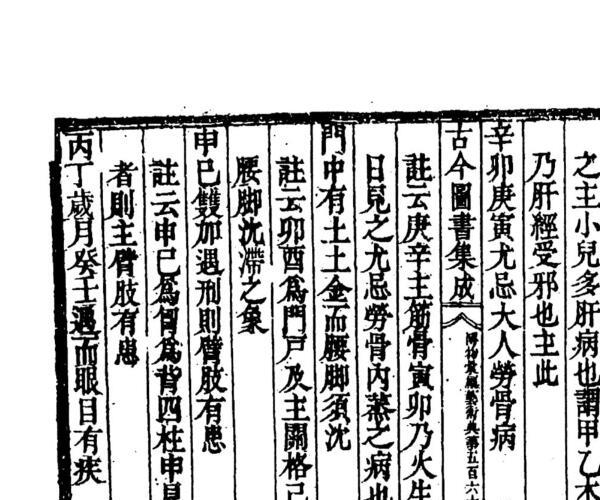 之主小兒多肝病也謂甲乙木
乃肝經受邪也主此
辛卯庚寅尤忌大人勞骨病
古今圖書集成
博物彙編藝術典第五百六十
註云庚辛主筋骨寅卯乃火生
日見之尤忌勞骨內蒸之病也
門中有土土金而腰脚須沈
註云卯酉爲門戸及主關格己
腰脚沈滯之象
申巳雙加遇刑則臂肢有患
註云申巳爲爲背四柱申見
者則主臂肢有患
丙丁歲月癸壬遇而眼目有疾